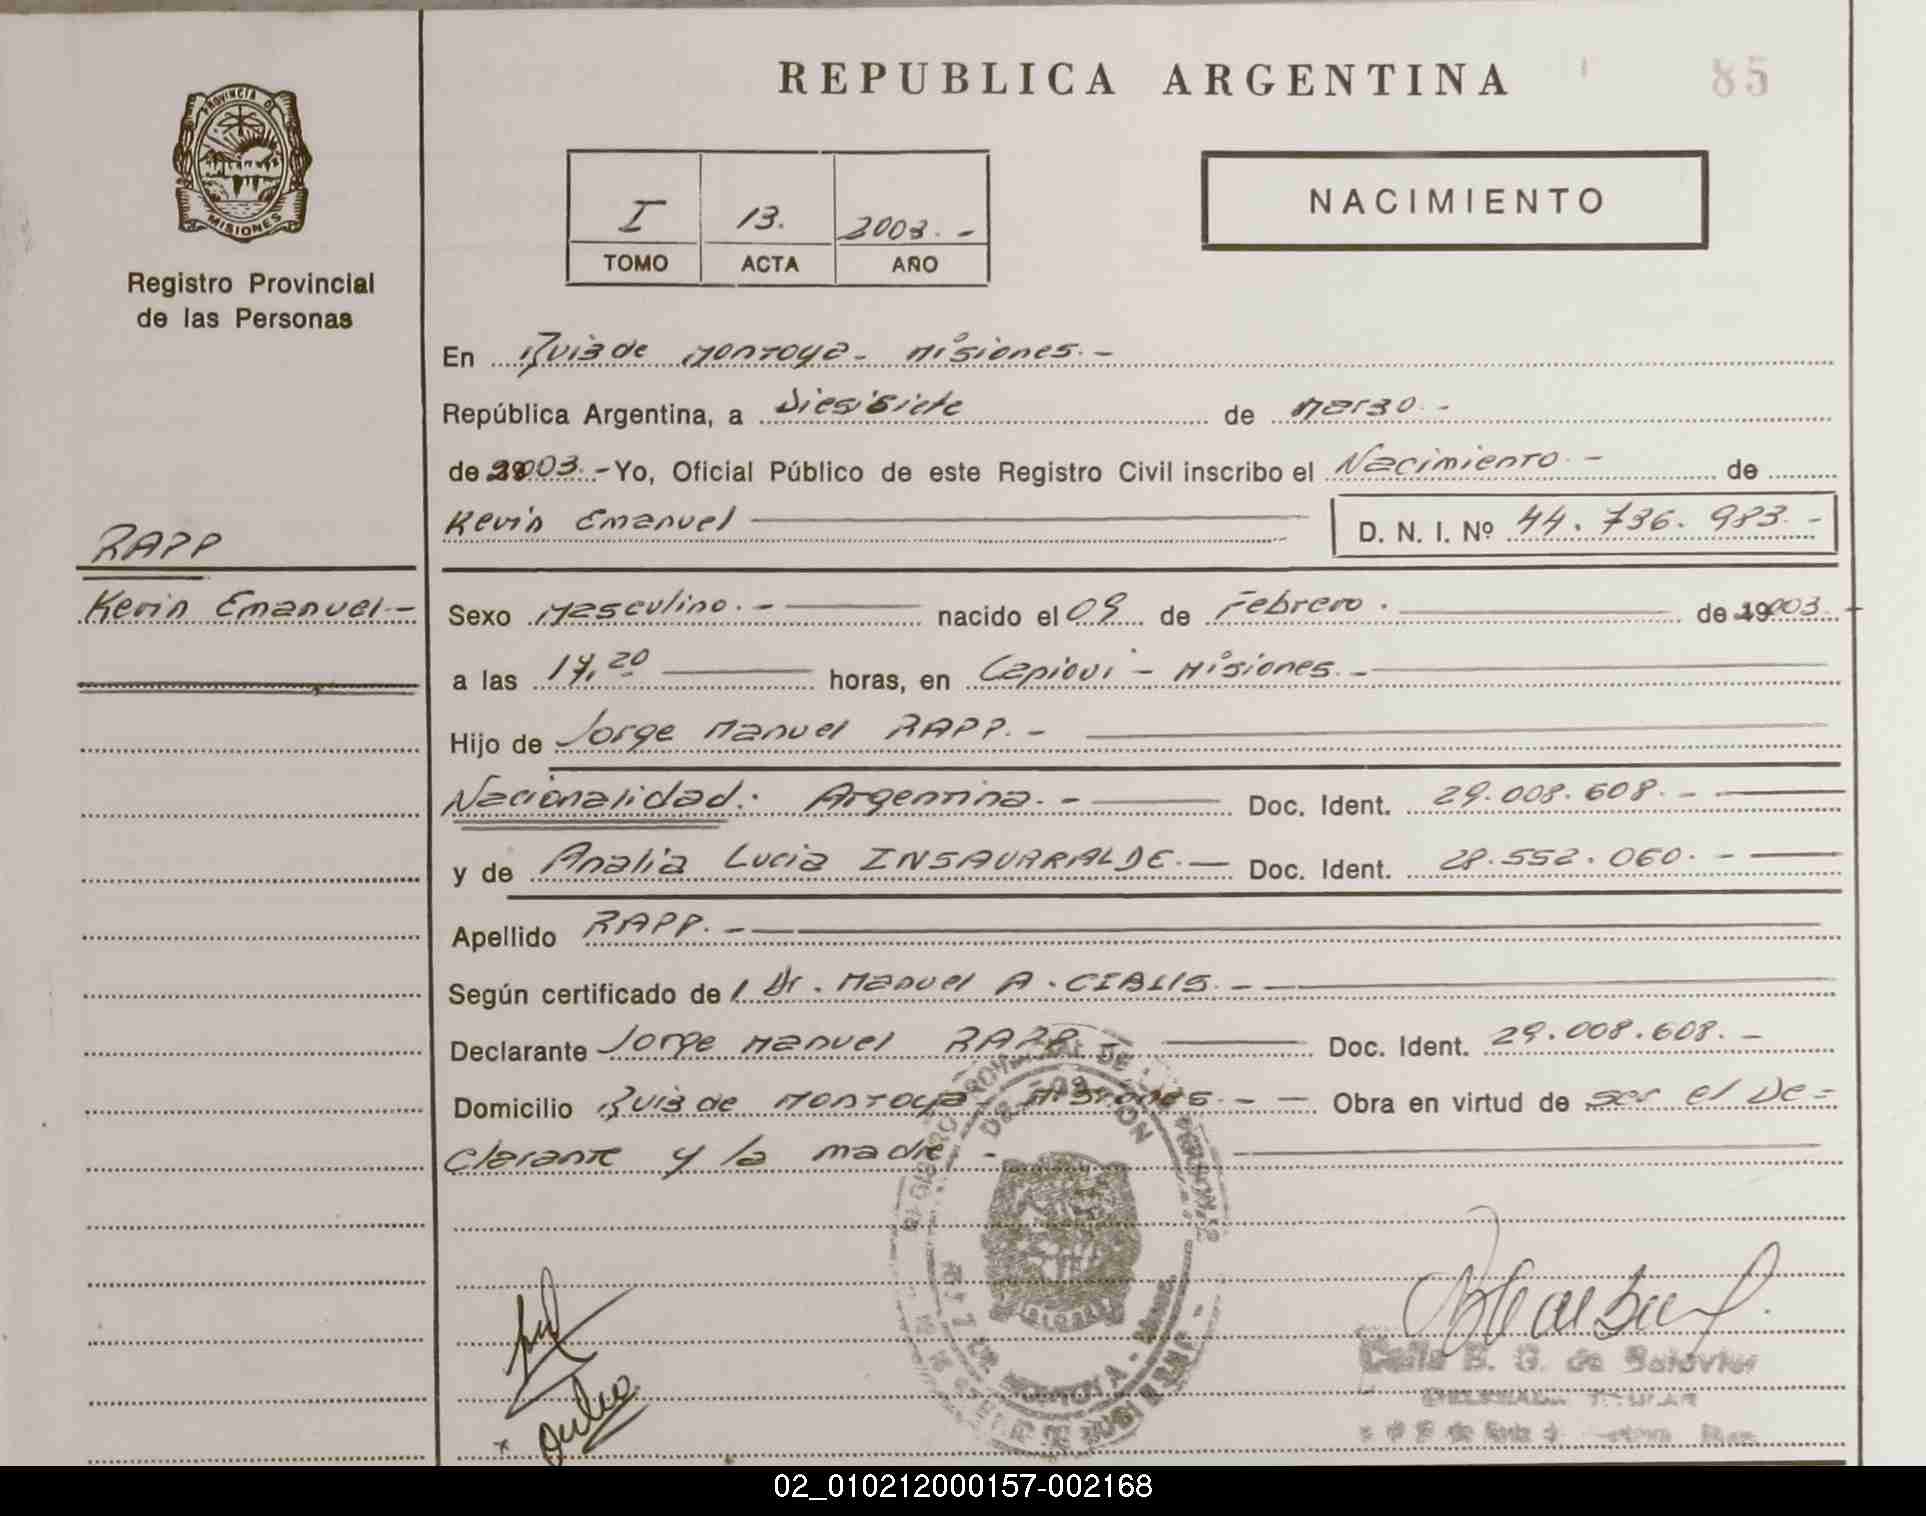 REPUBLICA ARGENTINA
85
PROVINCIA DE
MISIONES
Registro Provincial
de las Personas
I 13. 2003.-
TOMO ACTA AÑO
NACIMIENTO
En Ruiz de Montoya - Misiones.-
República Argentina, a Diesisiete de Marzo.-
de 2003.- Yo, Oficial Público de este Registro Civil inscribo el Nacimiento.- de
Kevin Emanuel D. N. I. Nº 44.736.983.-
RAPP
Kevin Emanuel.-
Sexo Masculino.- nacido el 09 de Febrero. de 19003.-
a las 14,20 horas, en Capiovi - Misiones.-
Hijo de Jorge Manuel RAPP.-
Nacionalidad: Argentina.- Doc. Ident. 29.008.608.-
y de Analia Lucia INSAURRALDE.- Doc. Ident. 28.552.060.-
Apellido RAPP.-
Según certificado de Dr. Manuel A. CIALIS.-
Declarante Jorge Manuel RAPP Doc. Ident. 29.008.608.-
Domicilio Ruiz de Montoya - Misiones.- Obra en virtud de ser el De-
clarante y la madre.-
02_010212000157-002168